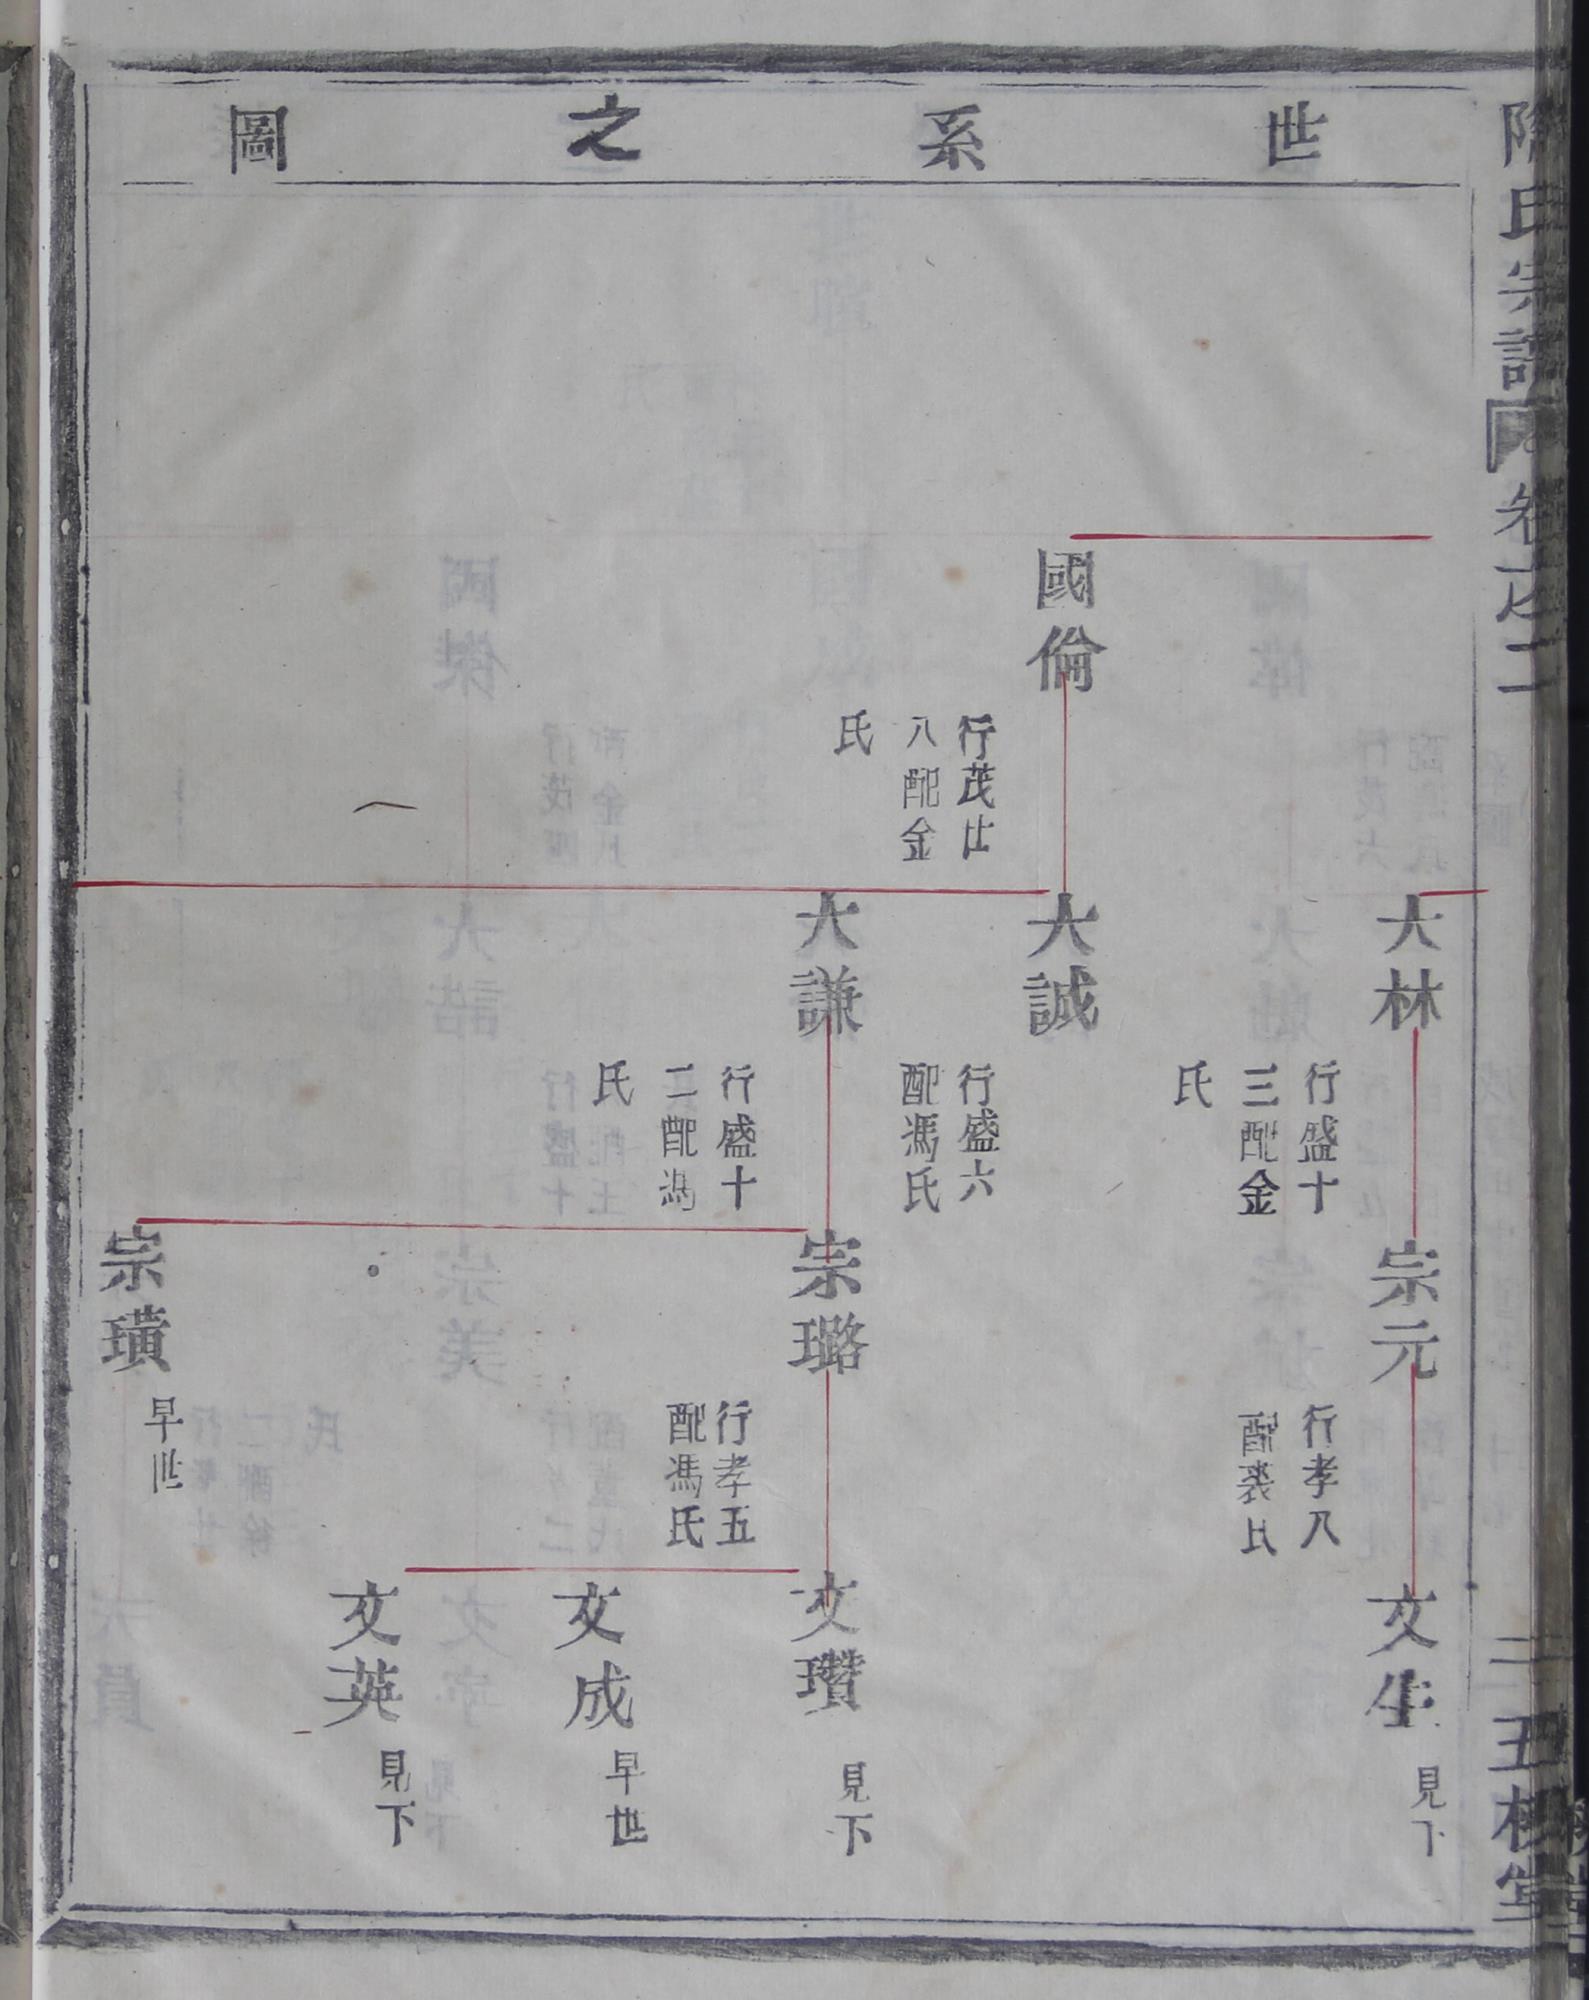 世系之圖
氏宗譜
卷之二
五桂堂
國倫
行茂廿
八配金
氏
大林
行盛十
三配金
氏
大誠
行盛六
配馮氏
大謙
行盛十
二配馮
氏
宗元
行孝八
配裘氏
宗璐
行孝五
配馮氏
宗璜
早世
文生
見下
文瓚
見下
文成
早世
文英
見下